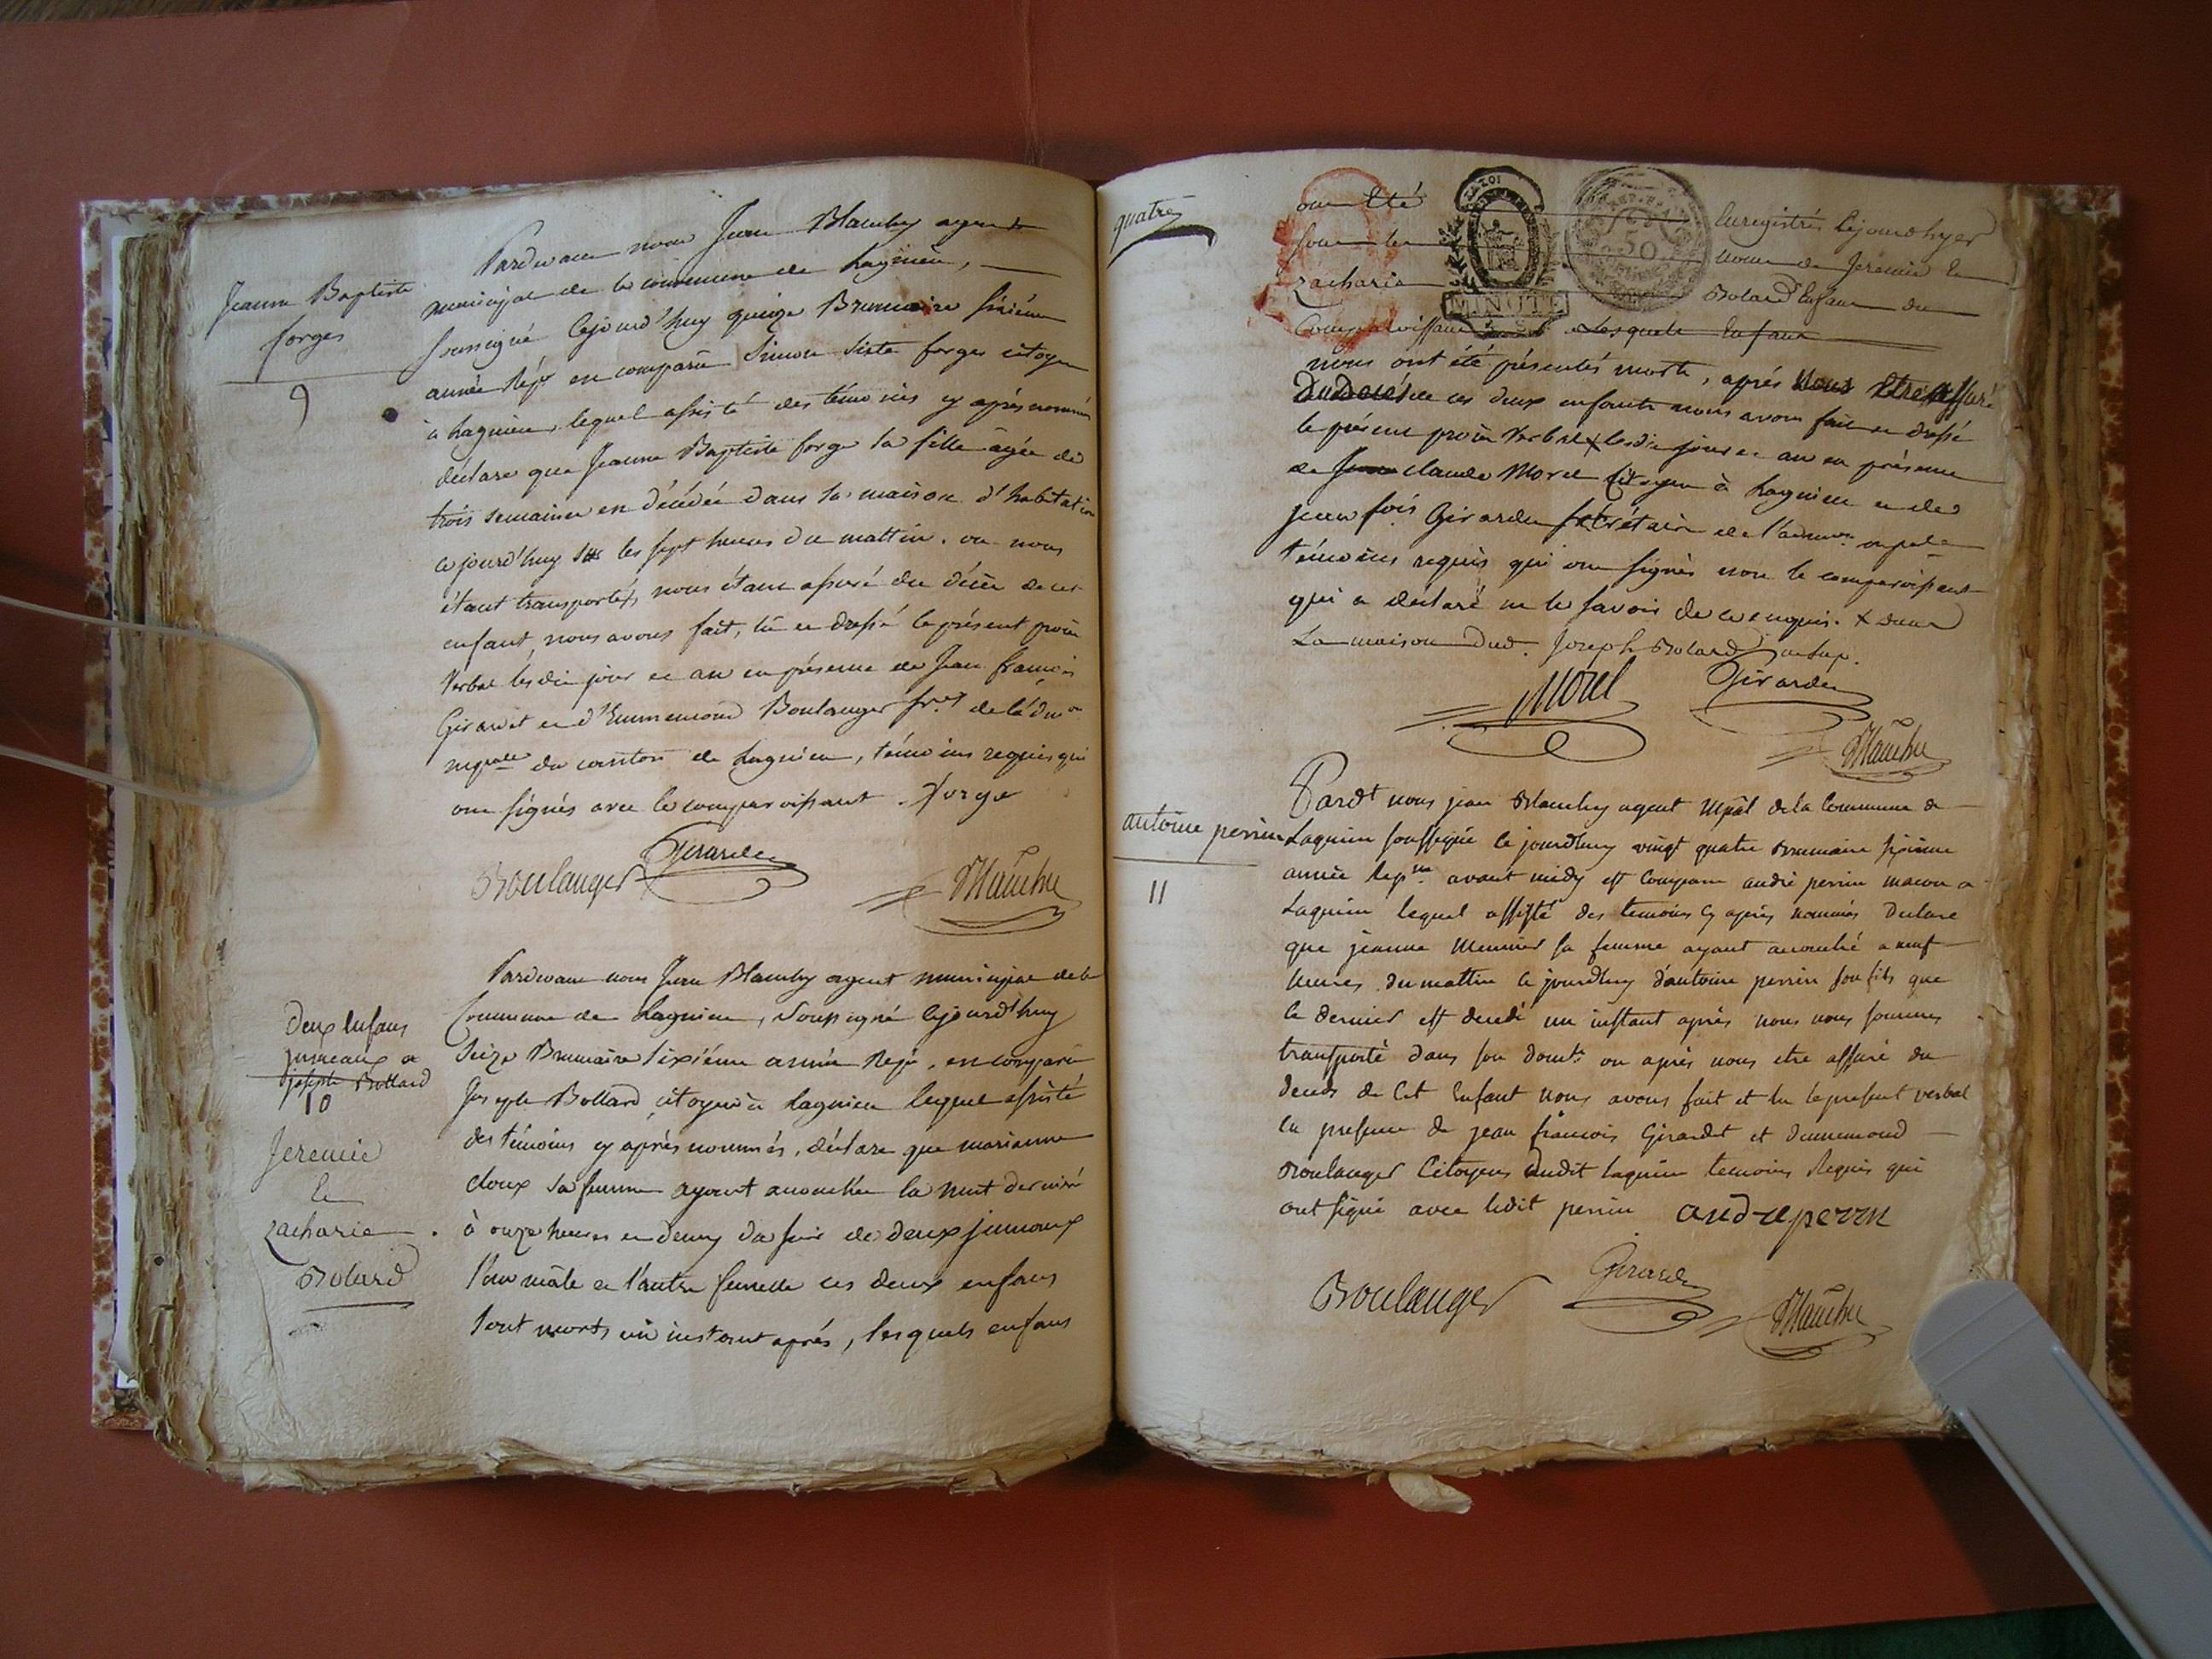 Jeanne Baptiste
forges
9
Pardevant nous Jean Blanchy agent
municipal de la commune de Lagnieu,
soussigné cejourd'huy quinze Brumaire sixiéme
année est comparu Simon Sixte forges citoyen
à Lagnieu, lequel assisté des témoins cy après nommés
déclare que Jeanne Baptiste forge sa fille âgée de
trois semaines est décédée dans sa maison d'habitation
cejourd'huy les sept heures du mattin. ou nous
étant transportés, nous étant assuré du décès de cet
enfant, nous avons fait, lû et dressé le présent procès
Verbal lesdit jour et an en présence de Jean françois
Girardet et d'Ennemond Boulanger de l'adm.on
mpale du canton de Lagnieu, témoins requis qui
ont signés avec le comparoissant. forge
Boulanger Girardet Blanchy
Deux Enfans
jumeaux a
joseph Bollard
10
Jeremie
Et
zacharie
Bolard
Pardevant nous Jean Blanchy agent municipal de la
Commune de Lagnieu, Soussigné cejourd'huy
Seize Brumaire Sixiéme année Rep. est comparu
Joseph Bollard citoyen à Lagnieu lequel assisté
des témoins cy après nommés, déclare que marianne
cloux sa femme ayant accouchée la nuit derniére
à onze heures et demy du soir de deux jumeaux
l'un mâle et l'autre femelle ces deux enfans
sont morts un instant après, lesquels enfans
quatre
ont Eté Enregistrés Cejourdhuyer
sous les noms de Jeremie Et
zacharie Bolard Enfans du
Comparoissant Lesquels Enfans
nous ont été présentés morts, après Nous Etre assuré
Du Decés de ces deux enfants nous avons fait et dressé
le présent procès Verbal X lesdit jour et an en présence
de claude Morel Citoyen à Lagnieu et de
jean fois Girardet secrétaire de l'adm.on mpale
témoins requis qui ont signés non le comparoissant
qui a déclaré ne le savoir de ce enquis. X dans
La maison Dud. Joseph Bolard
Morel Girardet
Blanchy
antoine perrin
11
Pardt nous jean Blanchy agent mpal de la Commune de
Lagnieu soussigné ce jourdhuy vingt quatre Brumaire sixieme
année Rep.ne avant midy est Comparu andré perrin macon a
Lagnieu lequel assisté des temoins cy après nommés Declare
que jeanne Meunier sa femme ayant accouché a neuf
heures du mattin ce jourdhuy d'antoine perrin son fils que
ce dernier est decedé un instant après nous nous sommes
transporté dans son dom.le ou après nous etre assuré du
deceds de Cet Enfant Nous avons fait et lu le present verbal
En presence de jean francois Girardet et d'ennemond
Boulanger Citoyens dudit Lagnieu temoins Requis qui
ont signé avec ledit perrin andre perrin
Boulanger Girardet Blanchy
MINUTE
50